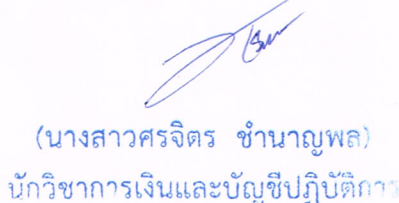 (นางสาวศรจิตร ชำนาญพล)
นักวิชาการเงินและบัญชีปฏิบัติการ